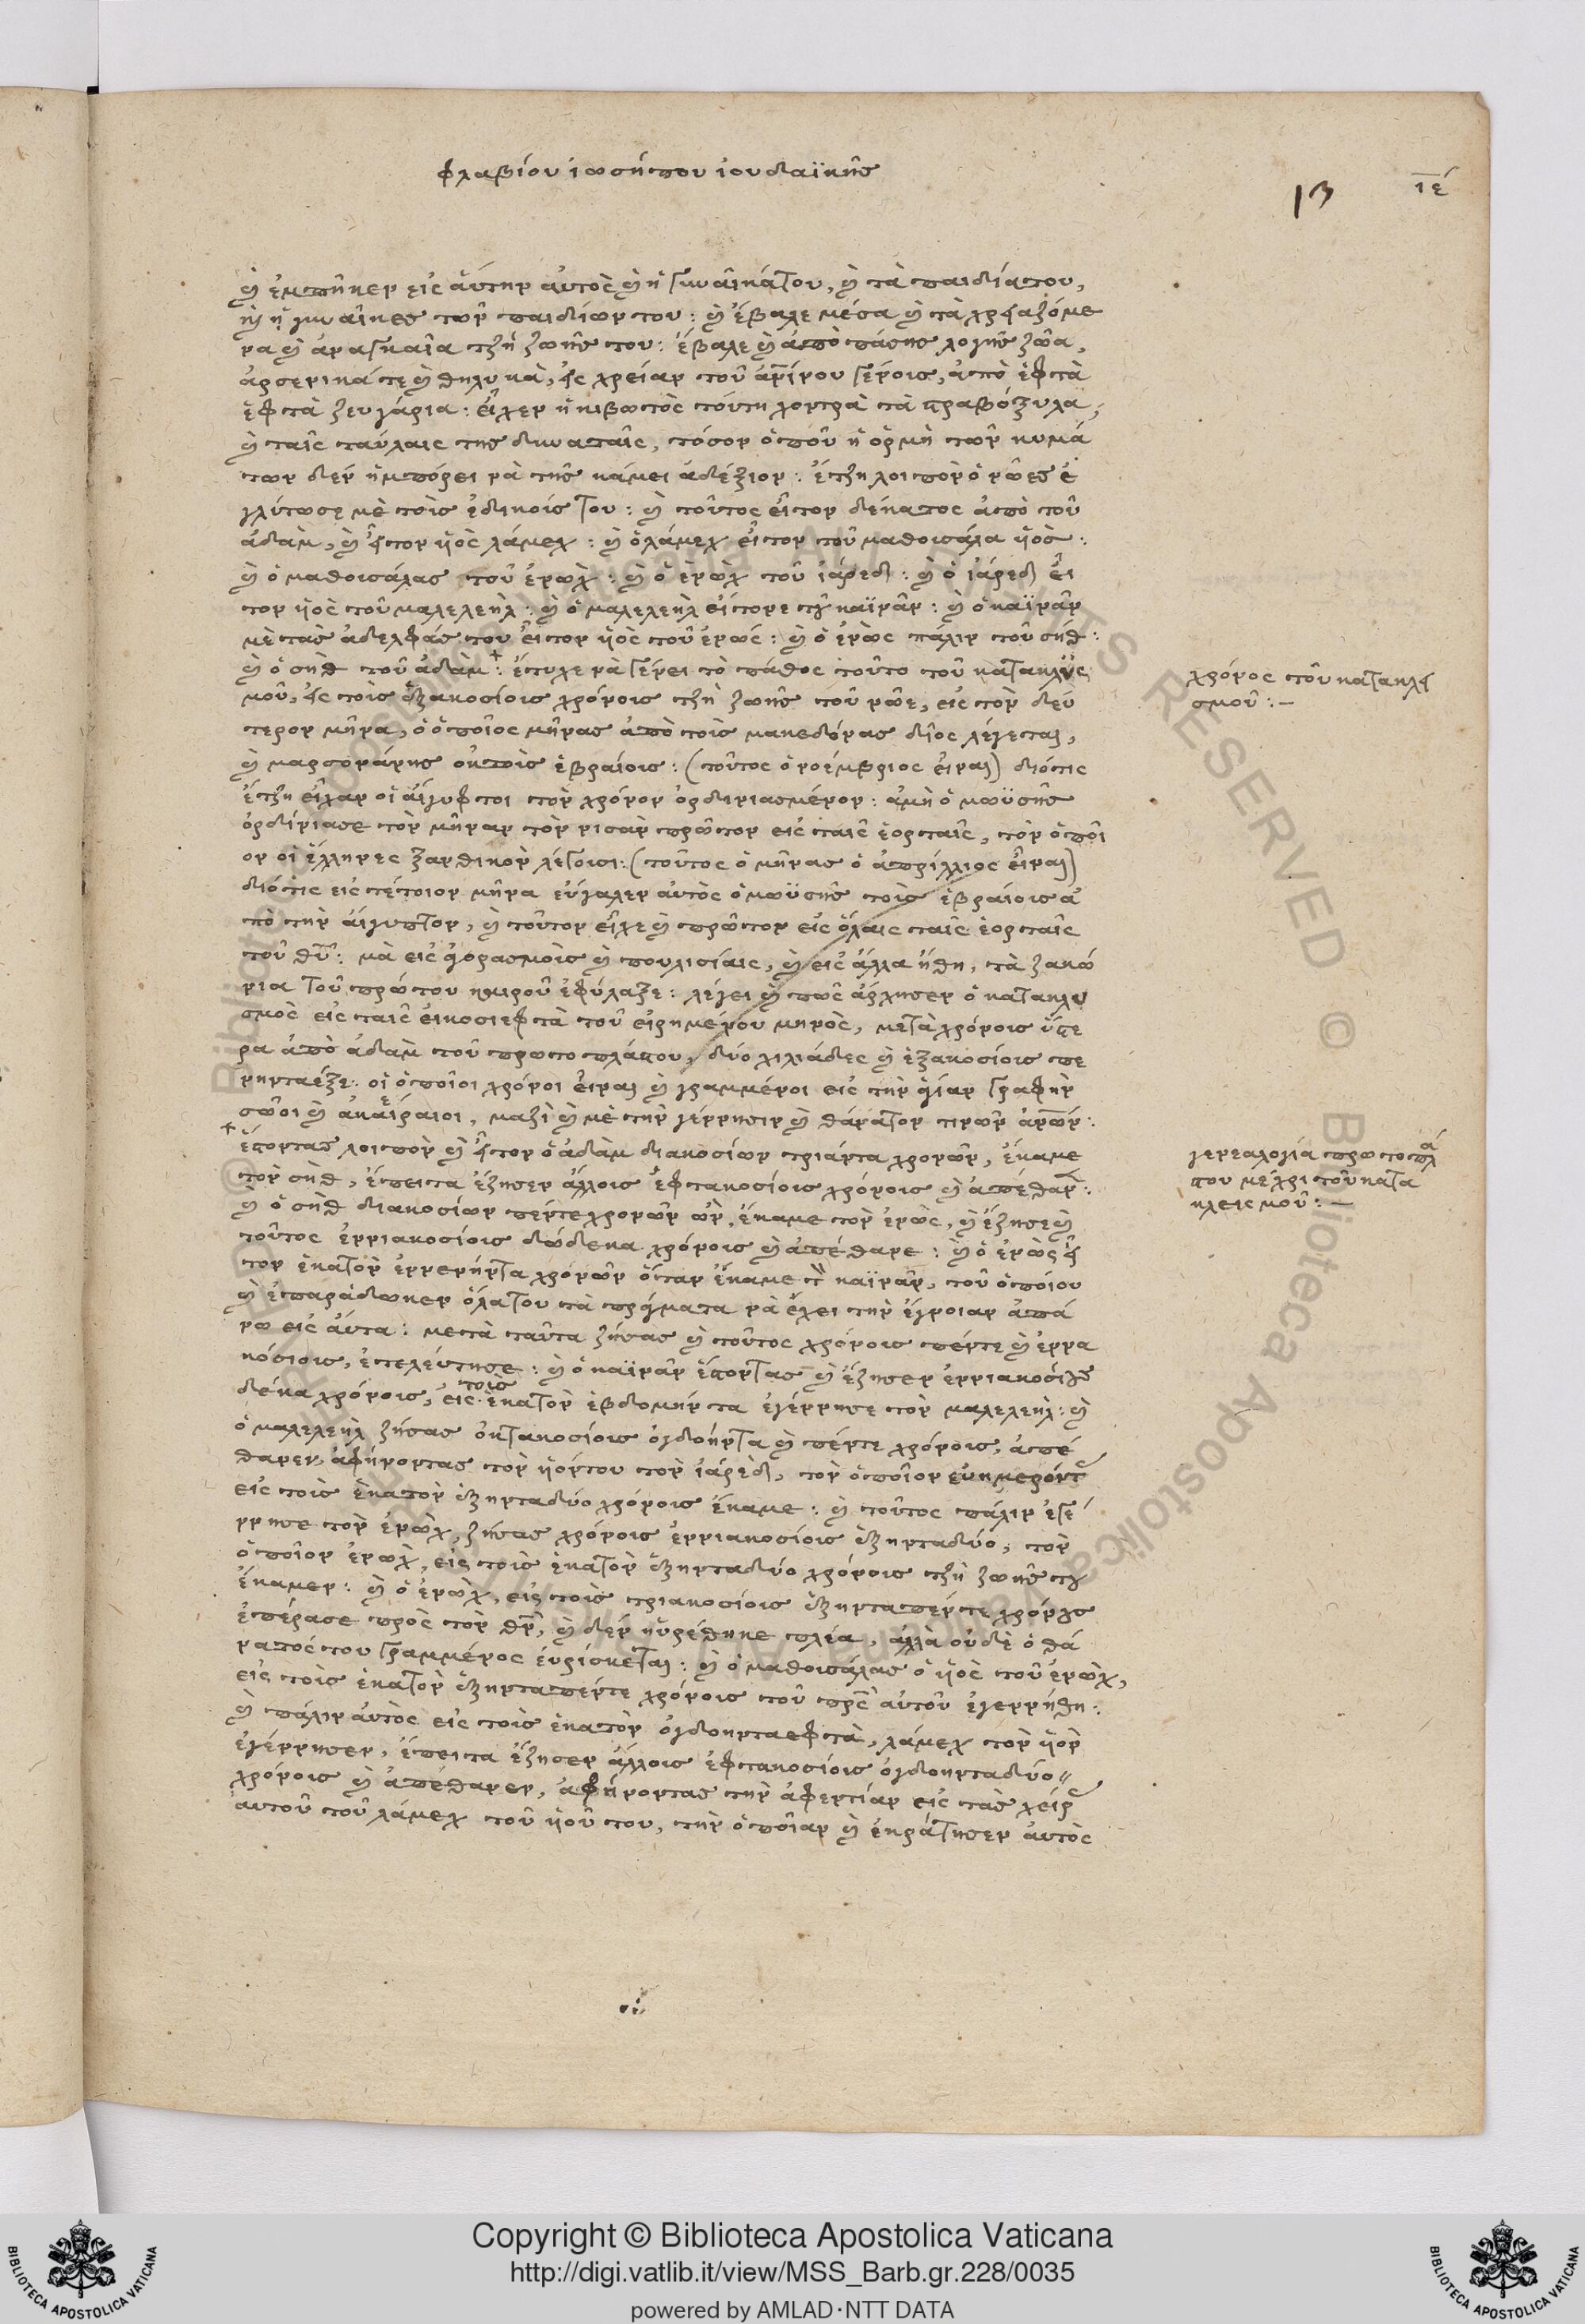 φλαβίου ἰωσήπου ἰουδαϊκῆς
13 ιέ
καὶ ἐμπῆκεν εἰς αὔτην αὐτὸς καὶ ἡ γυναῖκά του, καὶ τὰ παιδία του,
καὶ ἡ γυναῖκες τῶν παιδίων του: καὶ ἔβαλε μέσα καὶ τὰ χρειαζόμε
να καὶ ἀναγκαῖα τῆς ζωῆς του: ἔβαλε καὶ ἀπὸ πάσης λογῆς ζῶα,
ἀρσενικά τε καὶ θηλυκὰ, εἰς χρείαν τοῦ ἐκείνου γένοις, ἀπὸ ἑφτὰ
ἑφτὰ ζευγάρια: εἶχεν ἡ κιβωτὸς τούτη χοντρὰ τὰ στραβόξυλα,
καὶ ταῖς ταύλαις της δυναταῖς, τόσον ὁποῦ ἡ ὁρμὴ τῶν κυμά
των δὲν ἠμπόρει νὰ τῆς κάμει ἀδέξιον: ἔτζη λοιπὸν ὁ νῶες ἐ
γλύτωσε μὲ τοὶς ἐδικοίς του: καὶ τοῦτος εἶτον δέκατος ἀπὸ τοῦ
ἀδὰμ, καὶ εἶτον ὑὸς λάμεχ: καὶ ὁ λάμεχ εἶτον τοῦ μαθουσάλα ὑὸς:
καὶ ὁ μαθουσάλας τοῦ ἐνὼχ: καὶ ὁ ἐνὼχ τοῦ ἰάρεδ: καὶ ὁ ἰάρεδ εἶ
τον ὑὸς τοῦ μαλελεὴλ: καὶ ὁ μαλελεὴλ εἴτονε τοῦ καϊνᾶν: καὶ ὁ καϊνᾶν
μὲ τὰς ἀδελφάς του εἶτον ὑὸς τοῦ ἐνώς: καὶ ὁ ἐνὼς πάλιν τοῦ σήθ:
καὶ ὁ σὴθ τοῦ ἀδὰμ: ἔτυχε νὰ γένει τὸ πάθος τοῦτο τοῦ κατακλυς
μοῦ, εἰς τοὶς ἑξακοσίοις χρόνοις τῆς ζωῆς τοῦ νῶε, εἰς τὸν δεύ
τερον μῆνα, ὁ ὁποῖος μῆνας ἀπὸ τοὶς μακεδόνας δῖος λέγεται,
καὶ μαρσονάνης ἐκ τοὶς ἑβραίοις: (τοῦτος ὁ νοέμβριος εἶναι) διότις
ἔτζη εἶχαν οἱ αἴγυφτοι τὸν χρόνον ὀρδινιασμένον: ἀμὴ ὁ μωϋσῆς
ὀρδίνιασε τὸν μῆναν τὸν νισὰν πρῶτον εἰς ταῖς ἑορταῖς, τὸν ὁποῖ
ον οἱ ἕλληνες ξανθικὸν λέγοισι: (τοῦτος ὁ μῆνας ὁ ἀπρίλλιος εἶναι)
διότις εἰς τέτοιον μῆνα εὔγαλεν αὐτὸς ὁ μωϋσῆς τοὶς ἑβραίοις ἀ
πὸ τὴν αἴγυπτον, καὶ τοῦτον εἶχε καὶ πρῶτον εἰς ὅλαις ταῖς ἑορταῖς
τοῦ θεοῦ: μὰ εἰς ἀγορασμοὶς καὶ πουλισίαις, καὶ εἰς ἄλλα ἤθη, τὰ ζακώ
νια τοῦ πρώτου καιροῦ ἐφύλαξε: λέγει καὶ πῶς ἄρχησεν ὁ κατακλυ
σμὸς εἰς ταῖς εἰκοσιεφτὰ τοῦ εἰρημένου μηνὸς, μετὰ χρόνοις ὕστε
ρα ἀπὸ ἀδὰμ τοῦ πρωτοπλάστου, δύο χιλιάδες καὶ ἑξακοσίοις πε
νηνταέξε: οἱ ὁποῖοι χρόνοι εἶναι καὶ γραμμένοι εἰς τὴν ἁγίαν γραφὴν
σῶοι καὶ ἀκαίραιοι, μαζὶ καὶ μὲ τὴν γέννησιν καὶ θάνατον τινῶν ἀνῶν:
ἔστοντας λοιπὸν καὶ εἶτον ὁ ἀδὰμ διακοσίων τριάντα χρονῶν, ἔκαμε
τὸν σὴθ, ἔπειτα ἔζησεν ἄλλοις ἑφτακοσίοις χρόνοις καὶ ἀπέθανε:
καὶ ὁ σὴθ διακοσίων πέντε χρονῶν ὢν, ἔκαμε τὸν ἐνὼς, καὶ ἔζησε καὶ
τοῦτος ἐννιακοσίοις δώδεκα χρόνοις καὶ ἀπέθανε: καὶ ὁ ἐνὼς εἶ
τον ἑκατὸν ἐννενήντα χρονῶν ὅταν ἔκαμε τὸν καϊνᾶν, τοῦ ὁποίου
καὶ ἐπαράδωκεν ὅλα του τὰ πράγματα νὰ ἔχει τὴν ἔγνοιαν ἀπά
νω εἰς αὔτα: μετὰ ταῦτα ζήσας καὶ τοῦτος χρόνοις πέντε καὶ ἐννα
κόσιοις, ἐτελεύτησε: καὶ ὁ καϊνᾶν ἔστοντας καὶ ἔζησεν ἐννιακοσίους
δέκα χρόνοις, εἰς τοὶς ἑκατὸν ἑβδομήντα ἐγέννησε τὸν μαλελεὴλ: καὶ
ὁ μαλελεὴλ ζήσας ὀκτακοσίοις ὀγδοήντα καὶ πέντε χρόνοις, ἀπέ
θανεν, ἀφήνοντας τὸν ὑόν του τὸν ἰάρεδ, τὸν ὁποῖον εὐημερόντας
εἰς τοὶς ἑκατὸν ἑξηνταδύο χρόνοις ἔκαμε: καὶ τοῦτος πάλιν ἐγέ
ννησε τὸν ἐνὼχ, ζήσας χρόνοις ἐννιακοσίοις ἑξηνταδύο, τὸν
ὁποῖον ἐνὼχ, εἰς τοὶς ἑκατὸν ἑξηνταδύο χρόνοις τῆς ζωῆς του
ἔκαμεν: καὶ ὁ ἐνὼχ, εἰς τοὶς τριακοσίοις ἑξηνταπέντε χρόνους
ἐπέρασε πρὸς τὸν θν, καὶ δὲν ηὑρέθηκε πλέα, ἀλλὰ οὐδὲ ὁ θά
νατός του γραμμένος εὑρίσκεται: καὶ ὁ μαθουσάλας ὁ ὑὸς τοῦ ἐνὼχ,
εἰς τοὶς ἑκατὸν ἑξηνταπέντε χρόνοις τοῦ πρς αὐτοῦ ἐγεννήθη:
καὶ πάλιν αὐτὸς εἰς τοὶς ἑκατὸν ὀγδοηνταεφτὰ, λάμεχ τὸν ὑὸν
ἐγέννησεν, ἔπειτα ἔζησεν ἄλλοις ἑφτακοσίοις ὀγδοηνταδύο
χρόνοις καὶ ἀπέθανεν, ἀφήνοντας τὴν ἀφεντίαν εἰς τὰς χεῖρας
αὐτοῦ τοῦ λάμεχ τοῦ ὑοῦ του, τὴν ὁποῖαν καὶ ἐκράτησεν αὐτὸς
χρόνος τοῦ κατακλυ
σμοῦ:—
γενεαλογία πρωτοπλά
στου μέχρι τοῦ κατα
κλεισμοῦ:—
Copyright © Biblioteca Apostolica Vaticana
http://digi.vatlib.it/view/MSS_Barb.gr.228/0035
powered by AMLAD·NTT DATA
BIBLIOTECA APOSTOLICA VATICANA
BIBLIOTECA APOSTOLICA VATICANA